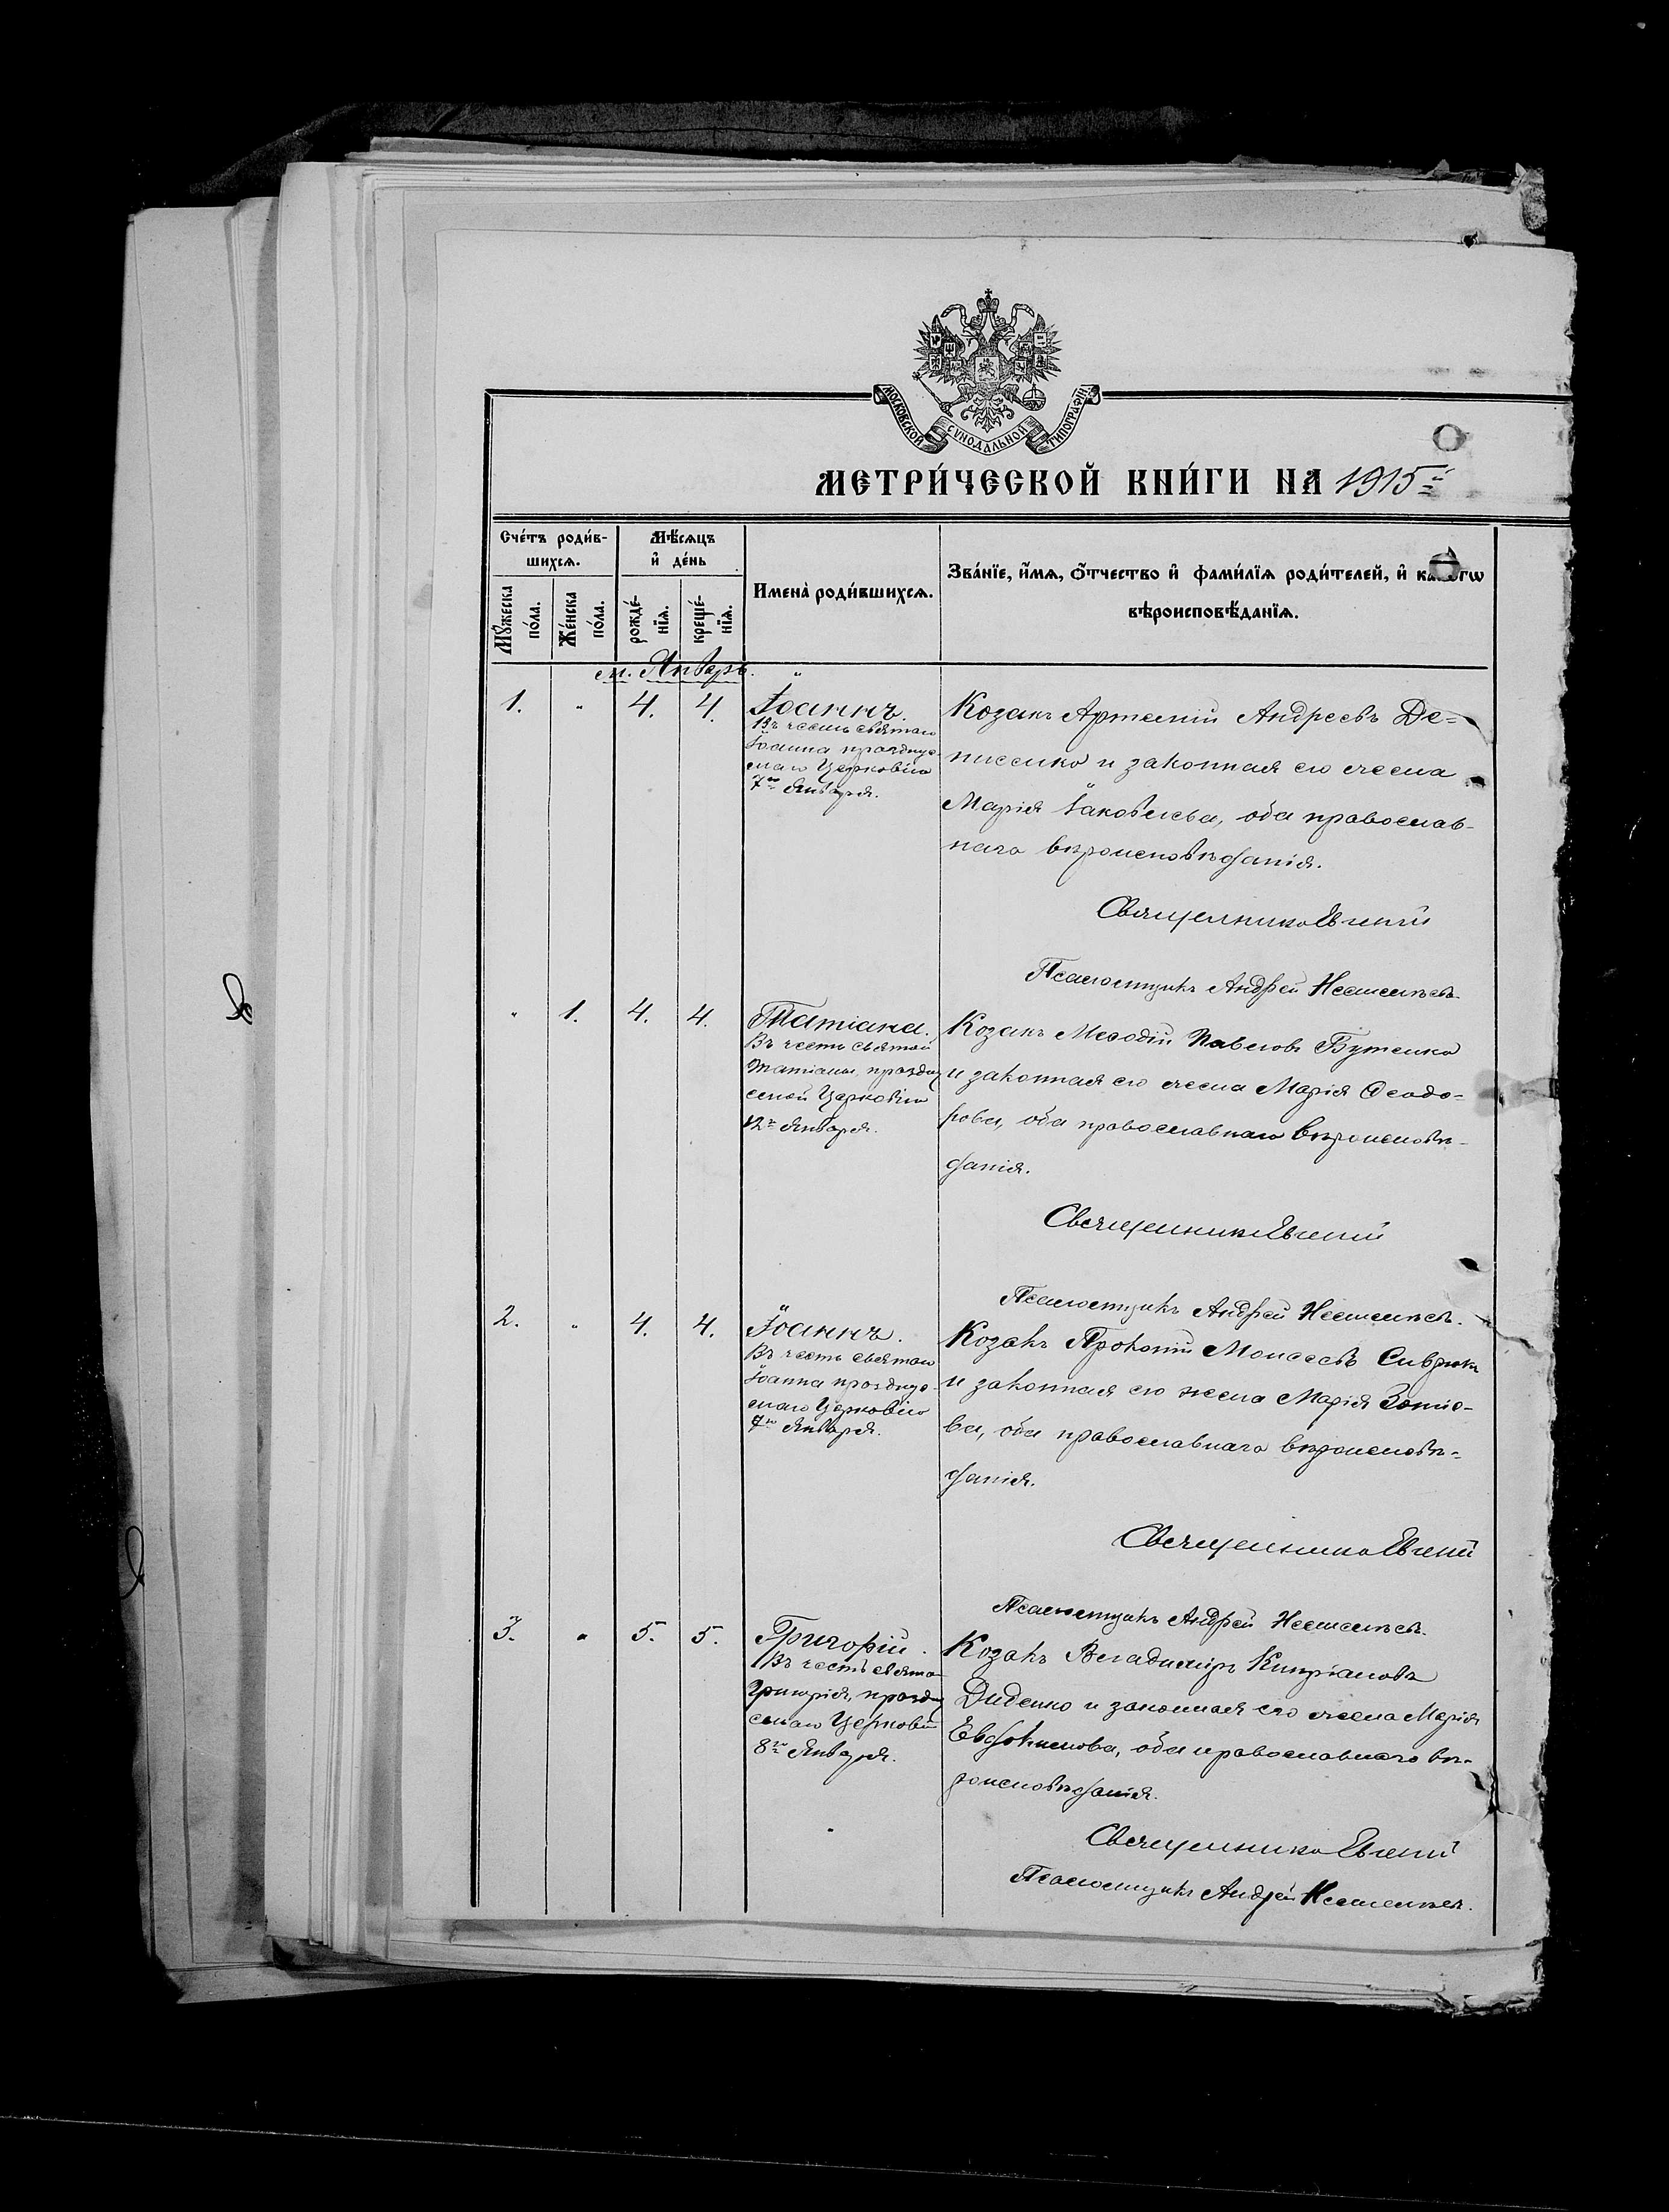 МОСКОВСКОЙ СѴНОДАЛЬНОЙ ТИПОГРАФІИ.
МЕТРИ́ЧЕСКОЙ КНИ́ГИ НА 1915
Сче́тъ роди́в-
шихсѧ.
Мꙋ́жеска
по́ла.
Же́нска
по́ла.
Мѣ́сѧцъ
и҆ де́нь
рожде́-
нїѧ.
креще́-
нїѧ.
Имена̀ роди́вшихсѧ.
Зва́нїе, и҆́мѧ, ѻ҆́тчество и҆ фами́лїѧ роди́телей, и҆
вѣроисповѣ́данїѧ.
м. Январь.
1. " 4. 4. Іоаннъ.
Въ честь святаго
Іоанна праздные-
маго Церковію
7го Января.
Козакъ Артемій Андреевъ Де=
нисенко и законная его жена
Марія Іаковлева, оба православ-
наго вѣроисповѣданія.
Священникъ Евгеній
Псаломщикъ Андрей
" 1. 4. 4. Татіана.
Въ честь святой
Татіаны, праздну
емой Церковію
12го Января.
Козакъ Меѳодій Павловъ Бутенко
и законная его жена Марія Ѳеодо-
рова, оба православнаго вѣроисповѣ-
данія.
Священникъ Евгеній
Псаломщикъ Андрей
2. " 4. 4. Іоаннъ.
Въ честь святаго
Іоанна праздные-
маго Церковію
7го Января.
Козакъ Прокопій Моисеевъ Сиврюкъ
и законная его жена Марія Зотіо-
ва, оба православнаго вѣроисповѣ-
данія.
Священникъ Евгеній
Псаломщикъ Андрей
3. " 5. 5. Григорій.
Въ честь свята
Григорія, праздну
емаго Церковію
8го Января.
Козакъ Владиміръ Кипріановъ
Диденко и законная его жена Марія
Евдокимова, оба православнаго вѣ-
роисповѣданія.
Священникъ Евгеній
Псаломщикъ Андрей